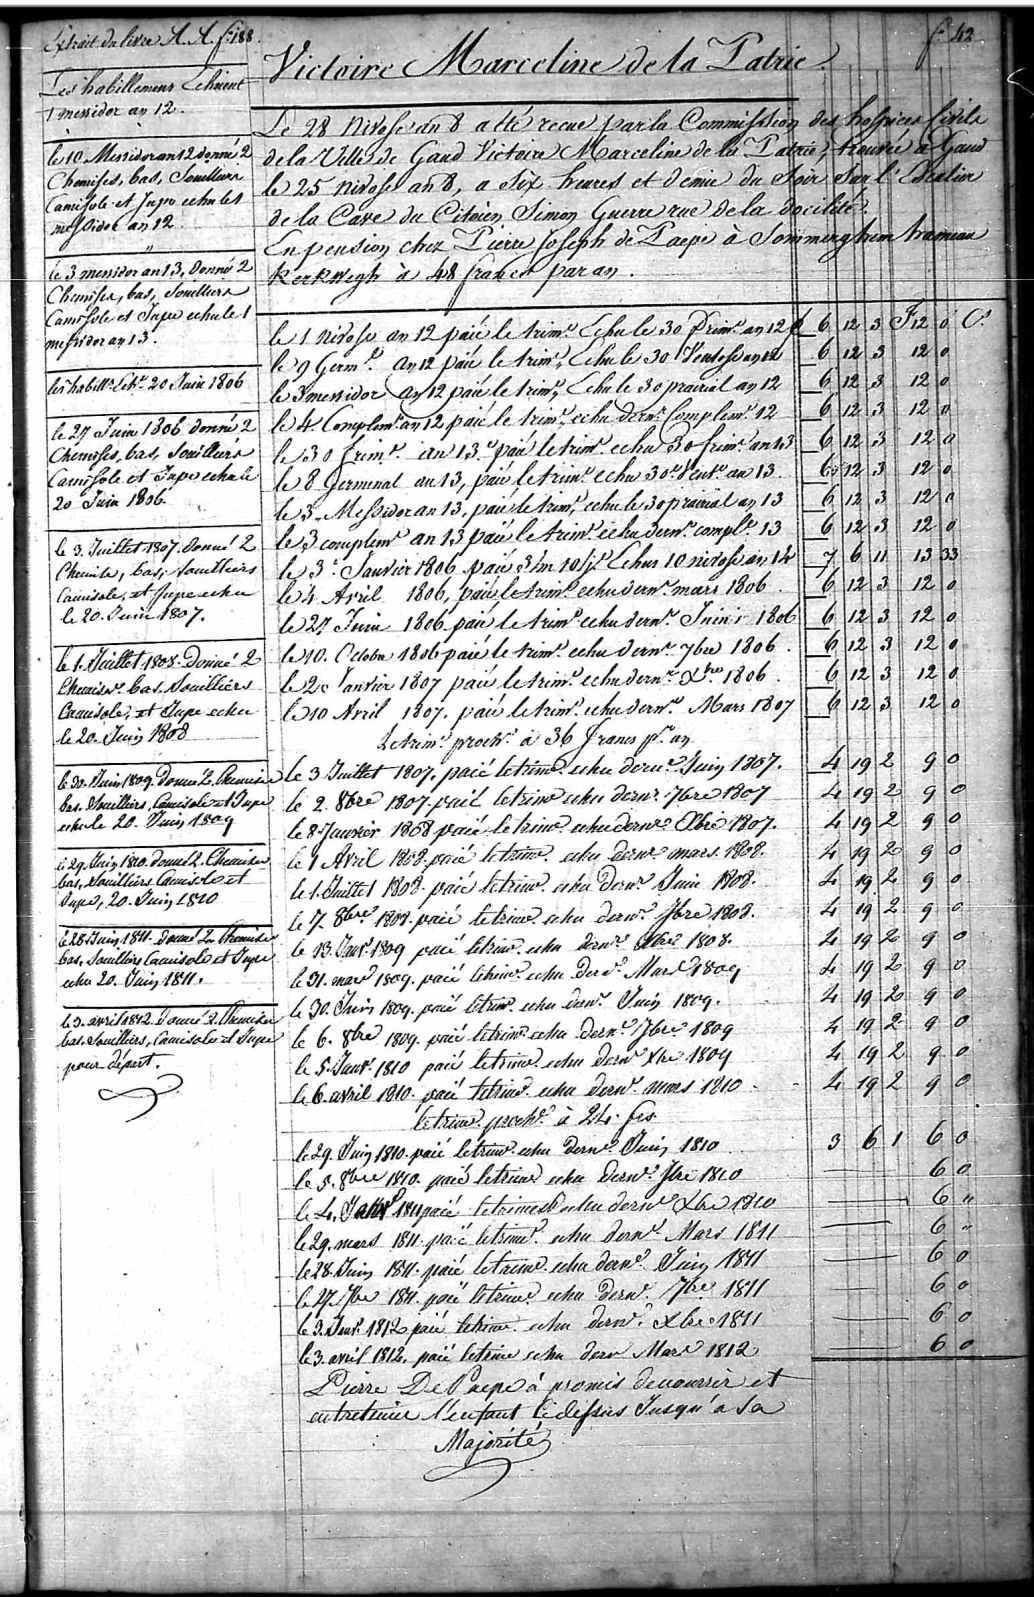 Extrait du livre A. A. f. 188.
f. 42
Victoire Marceline de la Patrie
Les habillemens Echoient
1 messidor an 12.
le 10 Messidor an 12 donné 2
Chemises, bas, Souilliers
Camisole et Jupe echu les
messidor an 12
le 3 messidor an 13, donné 2
Chemises, bas, Souilliers
Camisole et Jupe echu le 1
messidor an 13.
les habill. 20 Juin 1806
le 27 Juin 1806 donné 2
Chemises, bas, Souilliers
Camisole et Jupe echu le
20 Juin 1806
le 3. Juillet 1807. donné 2
Chemise, bas, Souilliers
Camisole, et Jupe echu
le 20. Juin 1807.
le 1. Juillet 1808. Donné 2
Chemises. bas. Souilliers
Camisole, et Jupe echu
le 20. Juin 1808
le 30. Juin 1809. donné 2. Chemises
bas. Souilliers, Camisole et Jupe
echu le 20. Juin 1809
le 29. Juin 1810. donné 2. Chemises
bas, Souilliers Camisole et
Jupe, 20. Juin 1810
le 28 Juin 1811. donné 2 Chemises
bas. Souilliers Camisole et Jupe
echu 20. Juin 1811.
le 3. avril 1812. donné 2. Chemises
bas. Souilliers, Camisole et Jupe
pour départ.
Le 28 Nivose an 8 a été recue par la Commission des hospices Civils
de la Ville de Gand Victoire Marceline de la Patrie, trouvée a Gand
le 25 nivose an 8, a Six heures et demie du Soir Sur l'Escalier
de la Cave du Citoien Simon Guerre rue de la docilité.
En pension chez Pierre Joseph de Paepe à Sommerghem hameau
Kerkwegh à 48 francs par an.
le 1 Nivose an 12 paié le trim.e Echu le 30 frim.e an 12 f 6 12 3 F 12 0 C.s
le 9 Germ.l an 12 paié le trim.e Echu le 30 Ventose an 12 6 12 3 12 0
le 3 messidor an 12 paié le trim.e Echu le 30 prairial an 12 6 12 3 12 0
le 4 Complem.e an 12 paié le trim.e echu dern.r Complem.e 12 6 12 3 12 0
le 30 frim.e an 13.e paié le trim.e echu 30 frim.e an 13 6 12 3 12 0
le 8 Germinal an 13, paié le trim.e echu 30.e Vent.e an 13 6 12 3 12 0
le 3 Messidor an 13, paié le trim.e echu le 30 prairial an 13 6 12 3 12 0
le 3 complem.e an 13 paié le trim.e echu dern.r compl.e 13 6 12 3 12 0
le 3.e Janvier 1806 paié 3 m 10 j.s Echus 10 nivose an 14 7 6 11 13 33
le 4 Avril 1806, paié le trim.e echu dern.r mars 1806 6 12 3 12 0
le 27 Juin 1806 paié le trim.e echu dern.r Juin 1806 6 12 3 12 0
le 10. Octobre 1806 paié le trim.e echu dern.r 7bre 1806 6 12 3 12 0
le 2 Janvier 1807 paié le trim.e echu dern.r Xbre 1806. 6 12 3 12 0
le 10 Avril 1807. paié le trim.e echu dern.r Mars 1807 6 12 3 12 0
Le trim.e proch.n à 36 francs p.r an
le 3 Juillet 1807. paié le trim.e echu dern.r Juin 1807. 4 19 2 9 0
le 2. 8bre 1807. paié le trim.e echu dern.r 7bre 1807 4 19 2 9 0
le 8 Janvier 1808 paié le trim.e echu dern.r Xbre 1807. 4 19 2 9 0
le 1 Avril 1808. paié le trim.e echu dern.r mars. 1808. 4 19 2 9 0
le 1. Juillet 1808. paié le trim.e echu dern.r Juin 1808. 4 19 2 9 0
le 7. 8bre 1808. paié le trim.e echu dern.r 7bre 1808. 4 19 2 9 0
le 13. Janv.r 1809 paié le trim.e echu dern.r Xbre 1808. 4 19 2 9 0
le 31. mars 1809. paié le trim.e echu der.r Mars 1809 4 19 2 9 0
le 30. Juin 1809. paié le trim.e echu dern.r Juin 1809. 4 19 2 9 0
le 6. 8bre 1809. paié le trim.e echu dern.r 7bre 1809 4 19 2 9 0
le 5. Janv.r 1810 paié le trim.e echu dern.r Xbre 1809 4 19 2 9 0
le 6. avril 1810. paié le trim.e echu dern.r mars 1810 4 19 2 9 0
le trim.e proch.n à 24. frs.
le 29. Juin 1810. paié le trim.e echu dern.r Juin 1810 3 6 1 6 0
le 5. 8bre 1810. paié le trim.e echu dern.r 7bre 1810 6 0
le 4. Janv.r 1811 paié le trimest echu dern.r Xbre 1810 6 "
le 29. mars 1811. paié le trim.e echu dern.r Mars 1811 6 "
le 28 Juin 1811. paié le trim.e echu dern.r Juin 1811 6 0
le 27. 7bre 1811. paié le trim.e echu dern.r 7bre 1811 6 0
le 3. Janv.r 1812 paié le trim.e echu dern.r Xbre 1811 6 0
le 3. avril 1812. paié le trim.e echu dern Mars 1812 6 0
Pierre De Paepe à promis de nourrir et
entretenir l'enfant ci dessus Jusqu'a Sa
Majorité